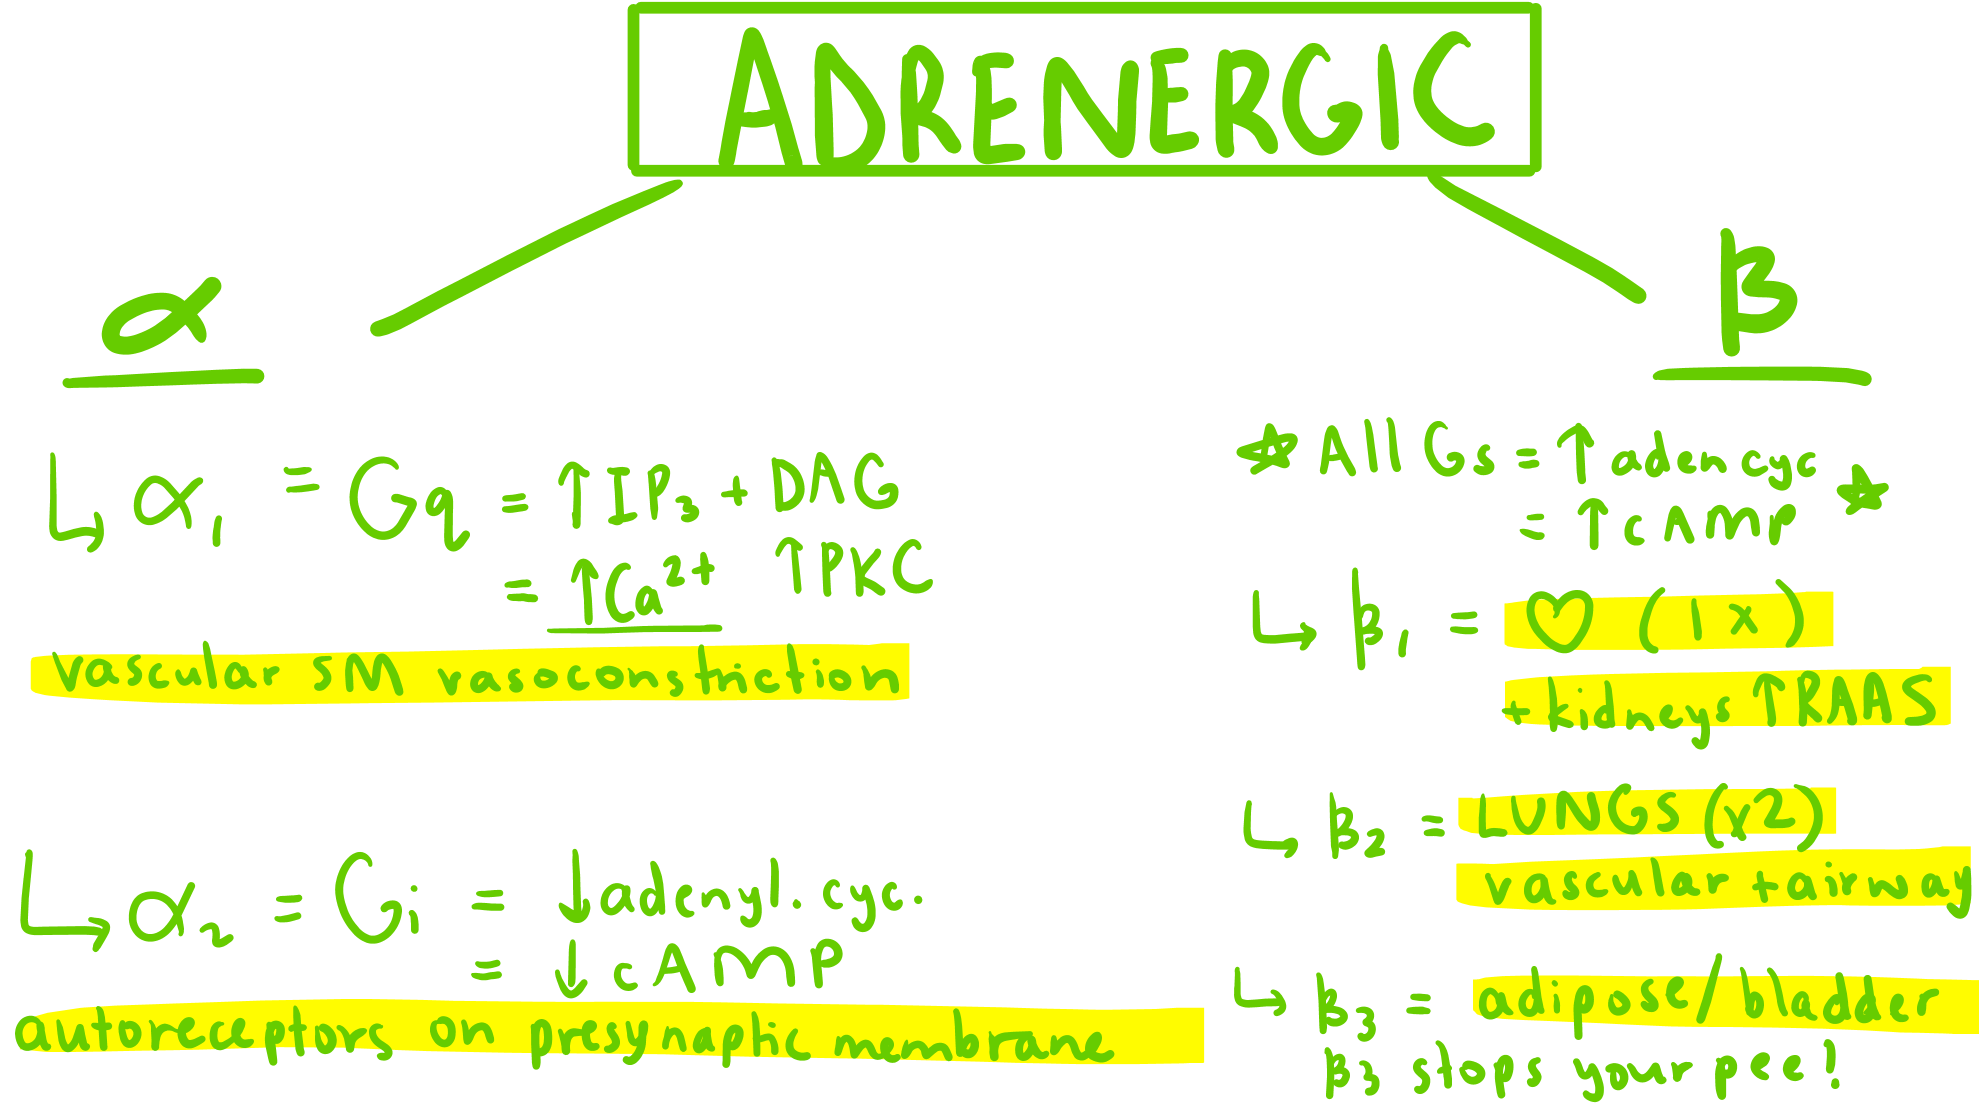 ADRENERGIC
α
↳ α₁ = Gq = ↑IP₃ + DAG
= ↑Ca²⁺ ↑PKC
vascular SM vasoconstriction
↳ α₂ = Gi = ↓adenyl. cyc.
= ↓ cAMP
autoreceptors on presynaptic membrane
β
☆ All Gs = ↑ aden cyc
= ↑ cAMP ☆
↳ β₁ = ♡ (1x)
+ kidneys ↑RAAS
↳ β₂ = LUNGS (x2)
vascular + airway
↳ β₃ = adipose/bladder
β3 stops your pee!